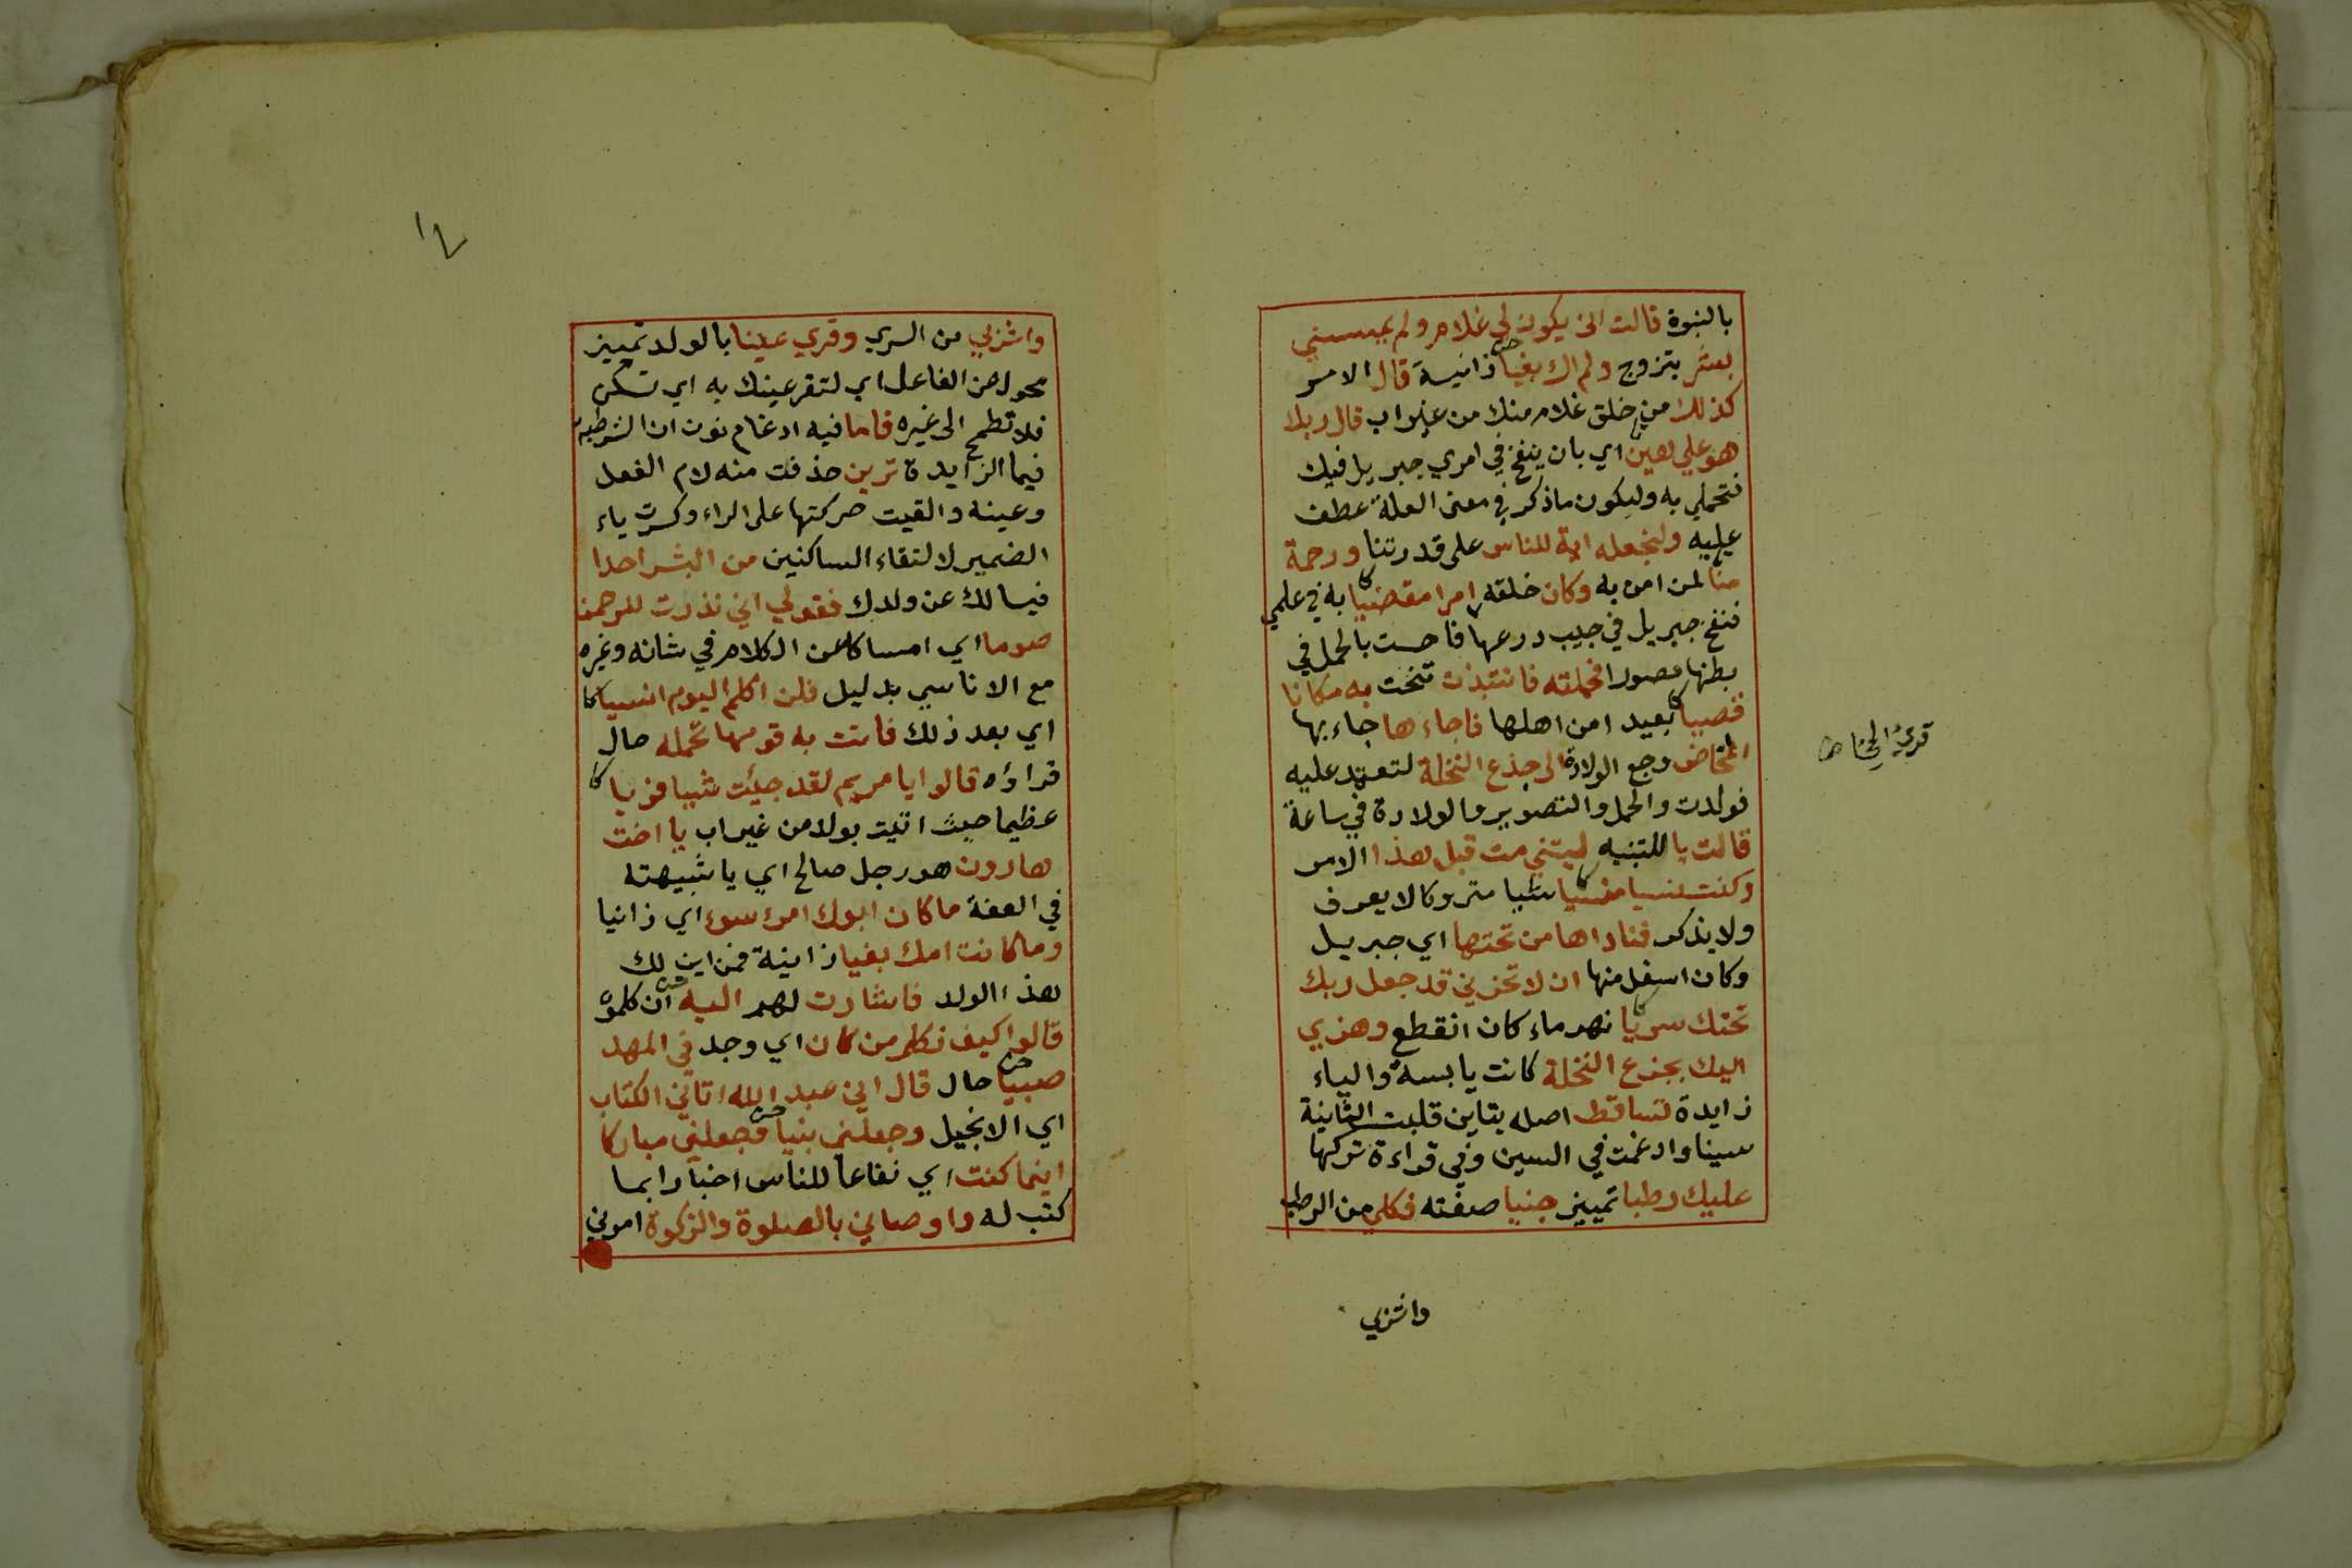 بالنبوة قالت انى يكون لي غلام ولم يمسسني
بشر بتزوج ولم اك بغيا زانية قال الامر
كذلك من خلق غلام منك من غير اب قال ربك
هو علي هين اي بان ينفخ في امري جبريل فيك
فتحملي به وليكون ما ذكر في معنى العلة عطف
عليه ولنجعله اية للناس على قدرتنا ورحمة
منا لمن امن به وكان خلقه امرا مقضيا به في علمي
فنفخ جبريل في جيب درعها فاحست بالحمل في
بطنها مصورا فحملته فانتبذت تنحت به مكانا
قصيبا بعيدا من اهلها فاجاءها جاء بها
المخاض وجع الولادة الى جذع النخلة لتعتمد عليه
فولدت والحمل والتصوير والولادة في ساعة
قالت يا للتنبيه ليتني مت قبل هذا الامر
وكنت نسيا منسيا شيا متروكا لا يعرف
ولا يذكر فناداها من تحتها اي جبريل
وكان اسفل منها ان لا تحزني قد جعل ربك
تحتك سريا نهر ماء كان انقطع وهزي
اليك بجذع النخلة كانت يابسة والباء
زايدة تساقط اصله بتاين قلبت الثانية
سينا وادغمت في السين وفي قراءة تركها
عليك رطبا تمييز جنيا صفته فكلي من الرطب
واشربي
واشربي من السري وقري عينا بالولد تمييز
محول من الفاعل اي لتقر عينك به اي تسكن
فلا تطمح الى غيره فاما فيه ادغام نون ان الشرطية
فيما الزايدة ترين حذفت منه لام الفعل
وعينه والقيت حركتها على الراء وكسرت ياء
الضمير لالتقاء الساكنين من البشر احدا
فيسالك عن ولدك فقولي اني نذرت للرحمن
صوما اي امساكا عن الكلام في شانه وغيره
مع الاناسي بدليل فلن اكلم اليوم انسيا
اي بعد ذلك فاتت به قومها تحمله حال
فراؤه قالوا يا مريم لقد جيت شيا فريا
عظيما حيث اتيت بولد من غير اب يا اخت
هارون هو رجل صالح اي يا شبيهته
في العفة ما كان ابوك امرء سوء اي زانيا
وما كانت امك بغيا زانية فمن اين لك
هذا الولد فاشارت لهم اليه ان كلموه
قالوا كيف نكلم من كان اي وجد في المهد
صبيا حال قال اني عبد الله اتاني الكتاب
اي الانجيل وجعلني نبيا وجعلني مباركا
اينما كنت اي نفاعا للناس اخبار ابما
كتب له واوصاني بالصلوة والزكوة امرني